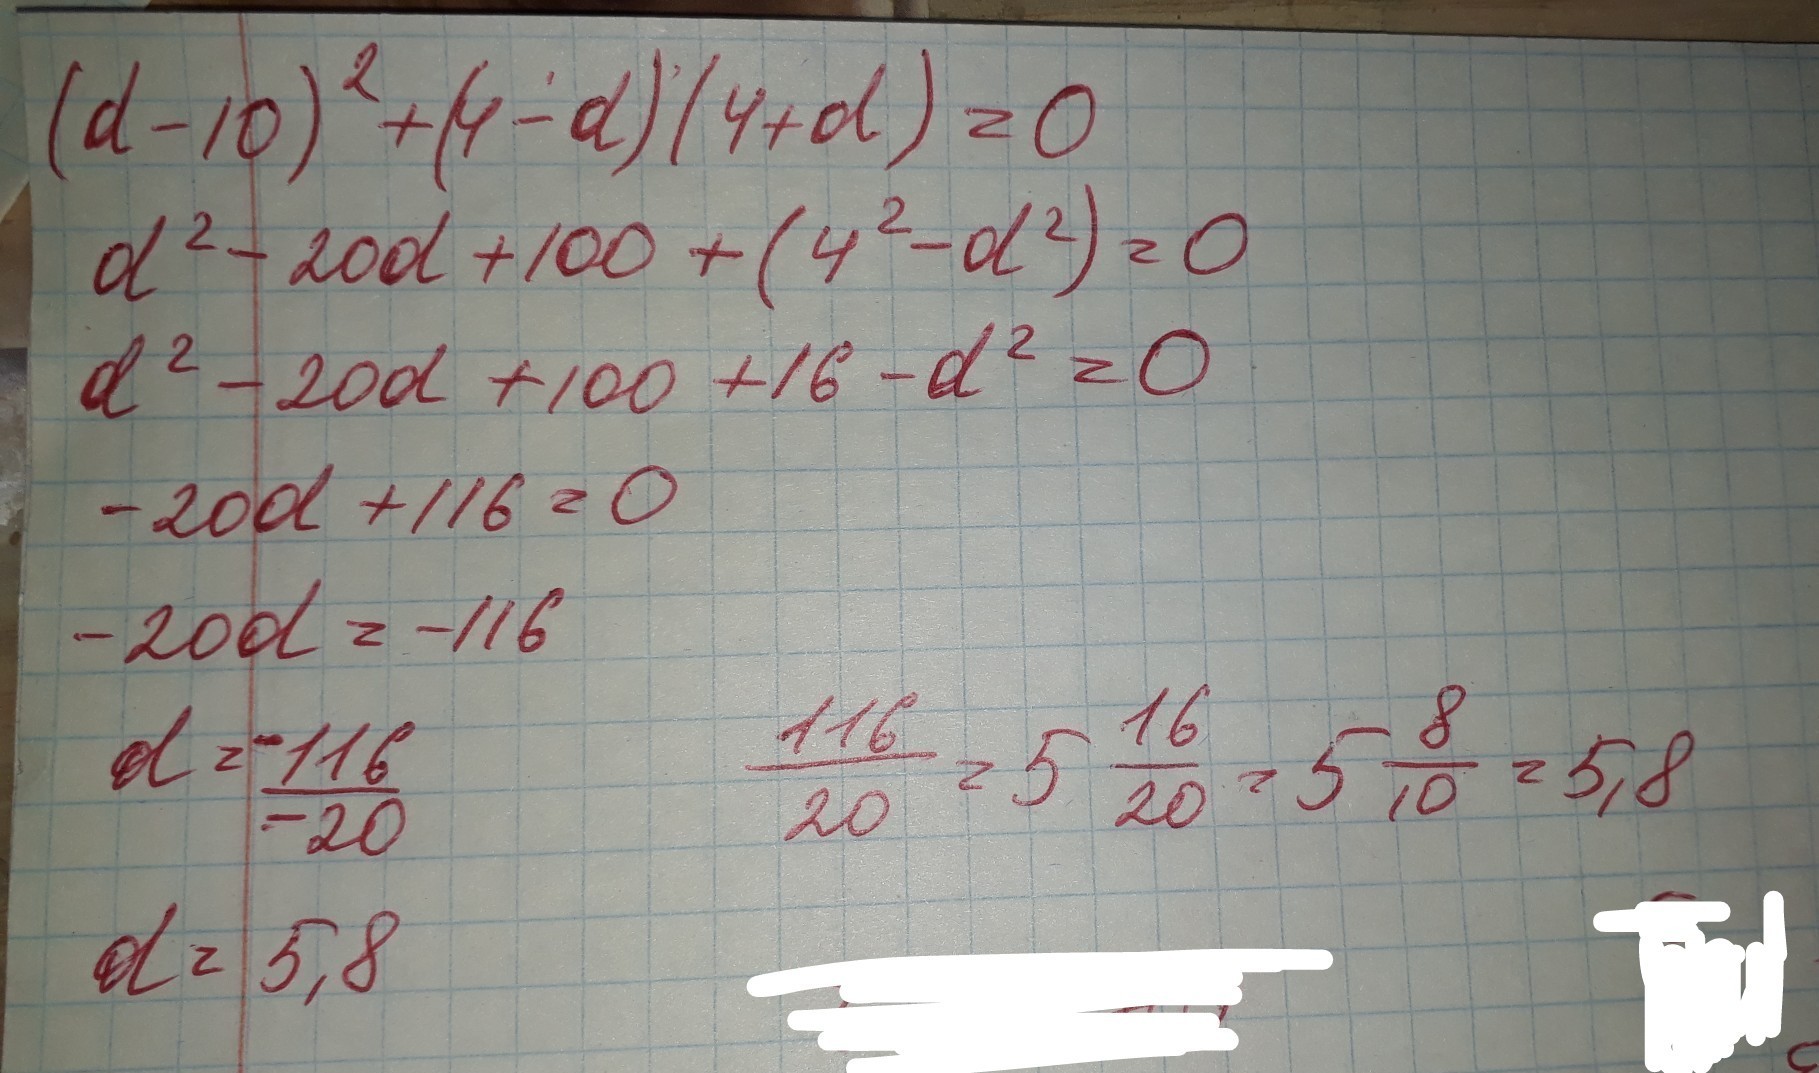 (d-10)² + (4-d)(4+d) = 0
d² - 20d + 100 + (4² - d²) = 0
d² - 20d + 100 + 16 - d² = 0
-20d + 116 = 0
-20d = -116
d = -116/-20
116/20 = 5 16/20 = 5 8/10 = 5,8
d = 5,8